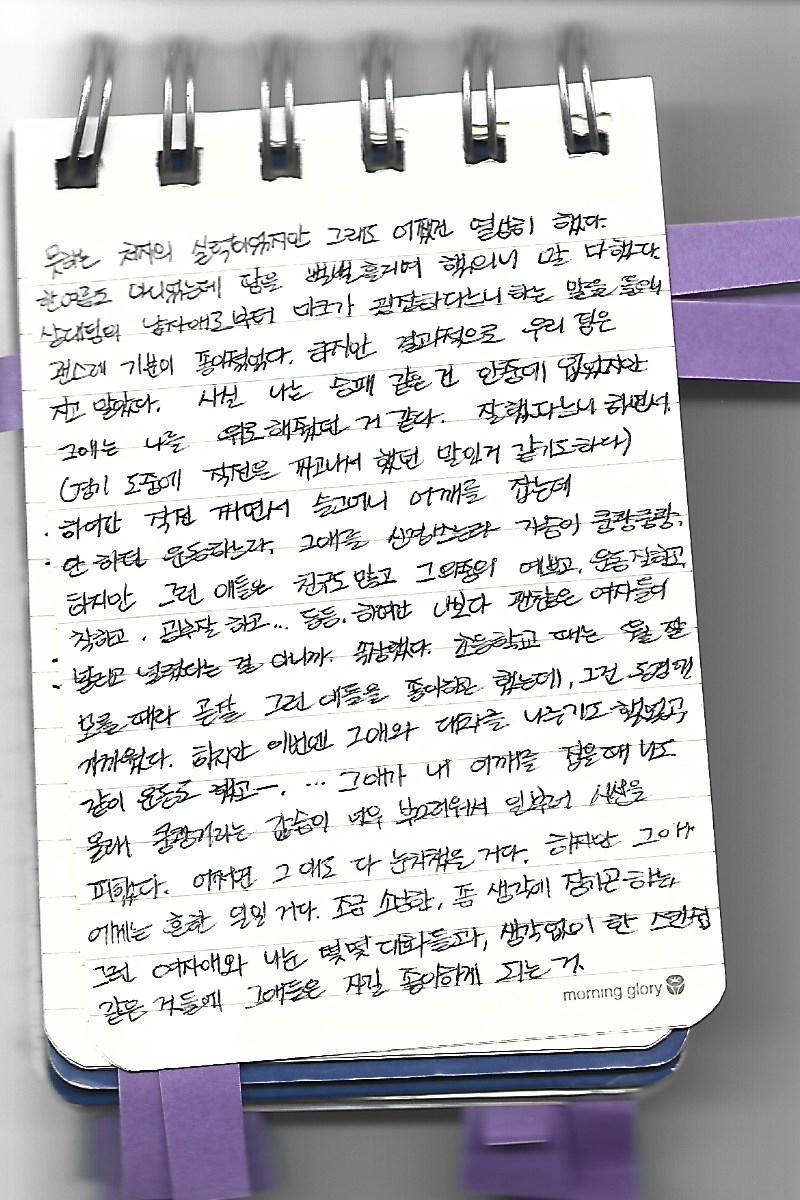 못하는 처지의 실력이었지만 그래도 어쨌건 열심히 했다.
한여름도 아니었는데 땀을 뻘뻘 흘리며 헥 말 다했다.
상대팀의 남자애로부터 마크가 굉장하다느니 하는 말을 들으니
괜스레 기분이 좋아졌었다. 하지만 결과적으로 우리 팀은
지고 말았다. 사실 나는 승패 같은 건 안중에 없었지만
그애는 나를 위로해줬던 거 같다. 잘했다느니 하면서.
(경기 도중에 작전을 짜고나서 했던 말인거 같기도하다)
하여간 작전 짜면서 슬그머니 어깨를 잡는데
안 하던 운동하느라, 그애를 신경쓰느라 가슴이 쿵쾅쿵쾅.
하지만 그런 애들은 친구도 많고 그 와중에 예쁘고, 운동 잘하고,
착하고, 공부잘 하고... 등등. 하여간 나보다 괜찮은 여자들이
널리고 널렸다는 걸 아니까. 속상했다. 초등학교 때는 뭘 잘
모를 때라 곧잘 그런 애들을 좋아하곤 했는데, 그건 동경에
가까웠다. 하지만 이번엔 그애와 대화를 나누기도 했었고,
같이 운동도 했고─. ... 그애가 내 어깨를 잡을때 나도
몰래 쿵쾅거리는 가슴이 너무 부끄러워서 일부러 시선을
피했다. 어쩌면 그 애도 다 눈치챘을 거다. 하지만 그애
에게는 흔한 일일 거다. 조금 소심한, 좀 생각에 잠기곤 하는,
그런 여자애와 나눈 몇몇 대화들과, 생각없이 한 스킨쉽
같은 것들에 그애들은 자길 좋아하게 되는 거.
morning glory